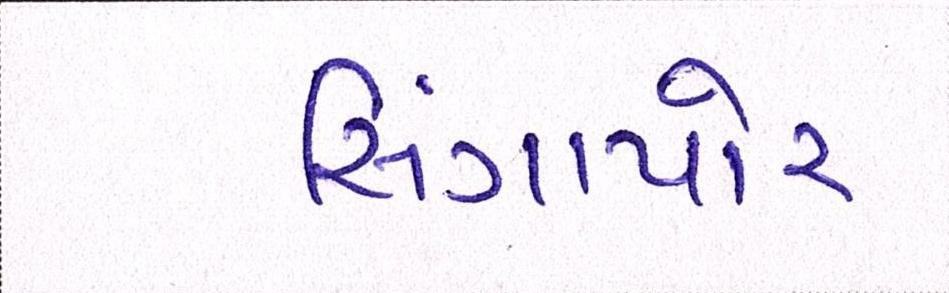 સિંગાપોર